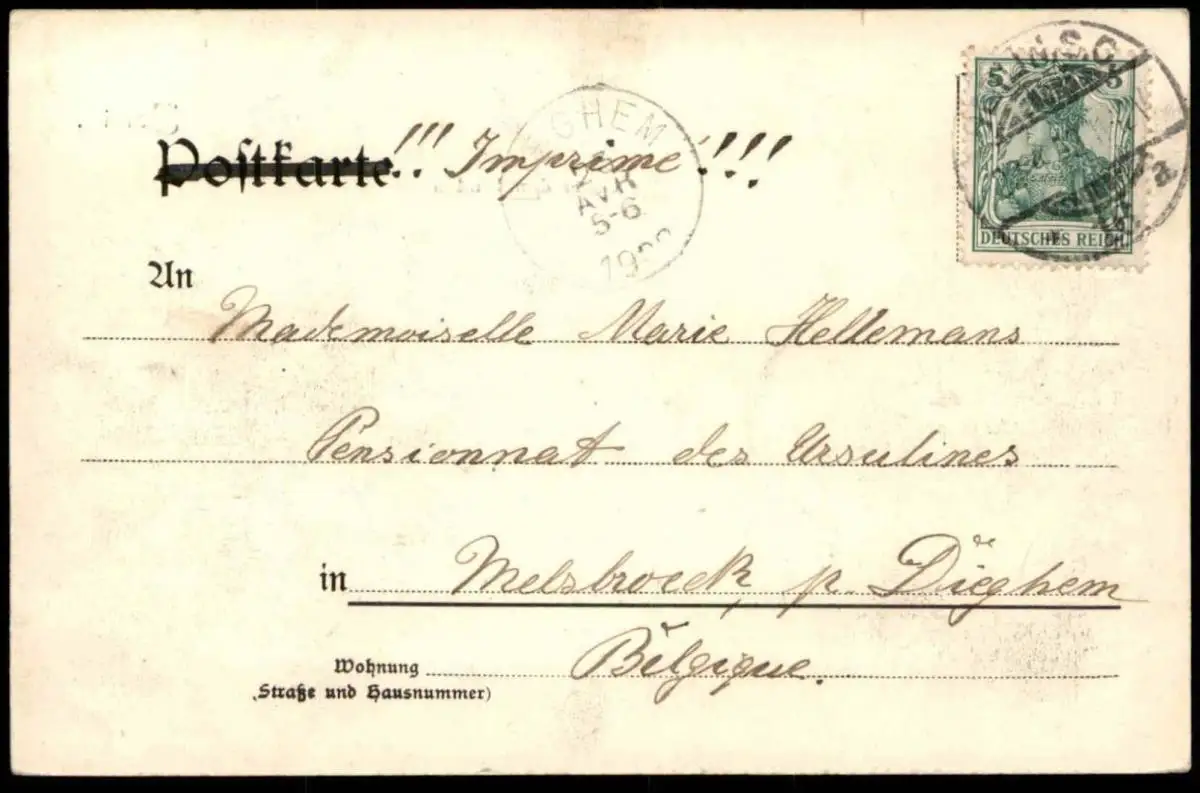 Postkarte !!! Imprimé !!!
GHEM
AVR
5-6
5 5
DEUTSCHES REICH
a
An
Mademoiselle Marie Hellemans
Pensionnat des Ursulines
in Melsbroeck, p. Dieghem
Belgique.
Wohnung
(Straße und Hausnummer)